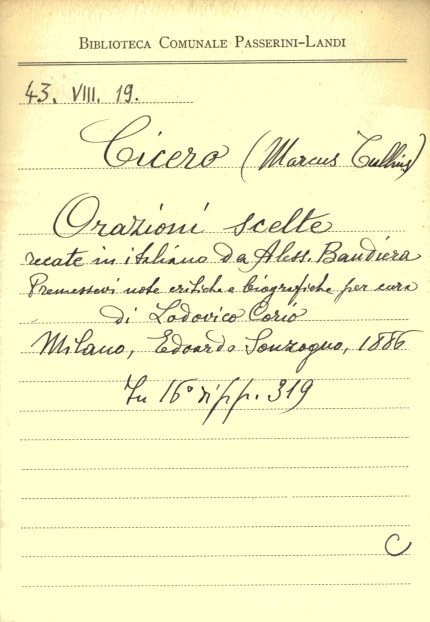 BIBLIOTECA COMUNALE PASSERINI-LANDI
43. VIII. 19.
Cicero (Marcus Tullius)
Orazioni scelte
recate in italiano da Aless. Bandiera
Premessevi note critiche e biografiche per cura
di Lodovico Corio
Milano, Edoardo Sonzogno, 1886
In 16° di pp. 319
C